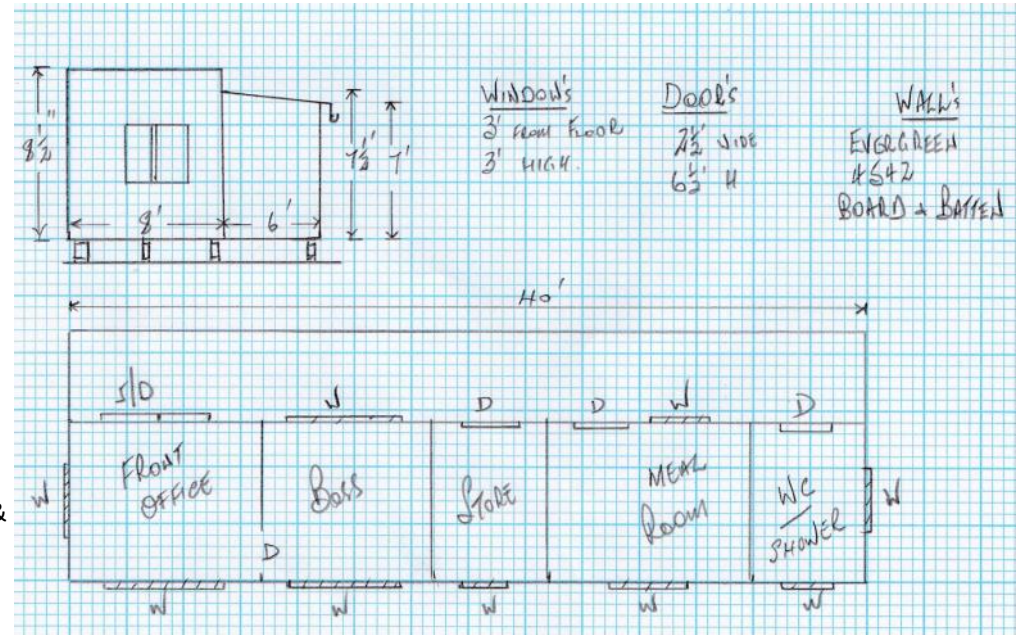 8½"
8'
6'
7½'
7'
WINDOW's
3' FROM FLOOR
3' HIGH.
DOOR's
2½' WIDE
6½' H
WALL's
EVERGREEN
4542
BOARD & BATTEN
40'
S/D
W
D
D
W
D
FRONT
OFFICE
BOSS
STORE
MEAL
ROOM
WC
/
SHOWER
W
W
D
W
W
W
W
W
&